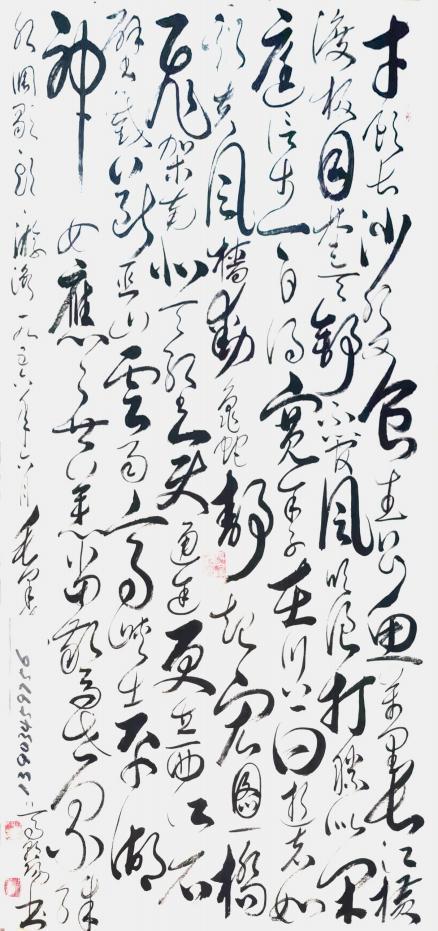 才饮长沙水又食武昌鱼万里长江横
渡极目楚天舒不管风吹浪打胜似闲
庭信步今日得寬余子在川上曰逝者如
斯夫風樯動龟蛇靜起宏圖一橋
飞架南北天堑变通途更立西江石
壁截断巫山雲雨高峡出平湖
神女應无恙当驚世界殊
水调歌头 游泳 一九五六年六月
书